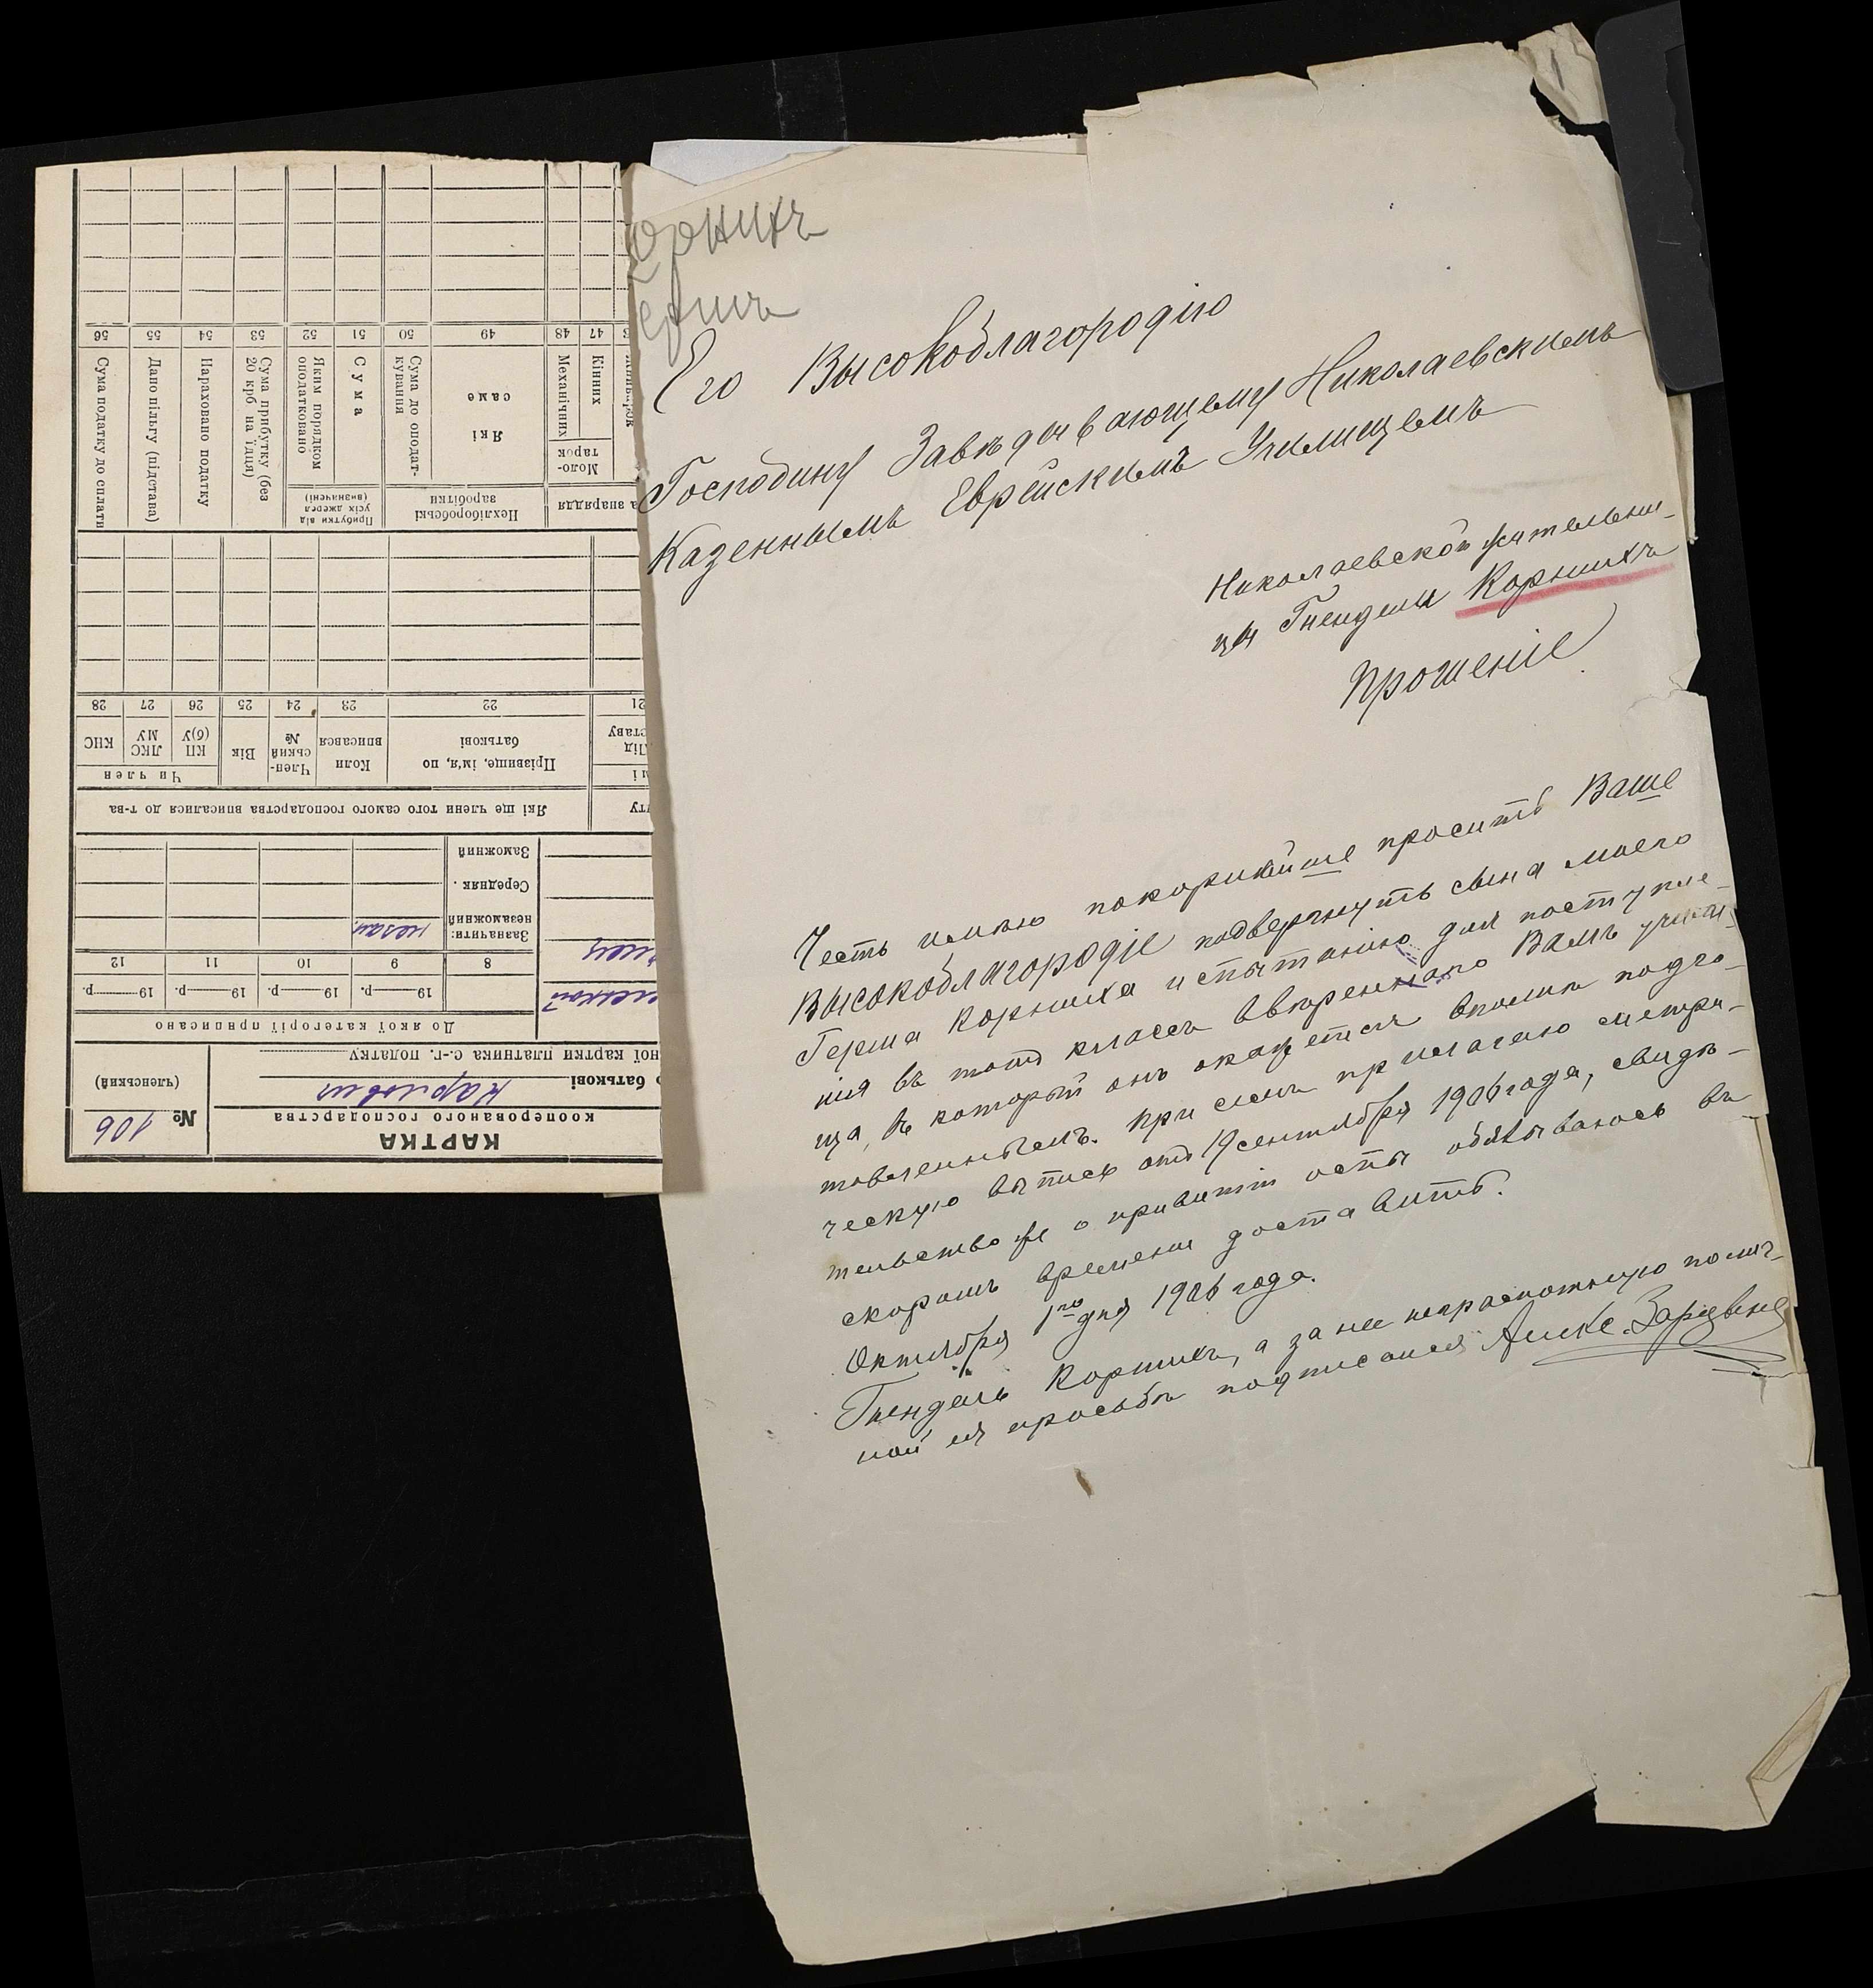 орнихъ
ершъ
Его Высокоблагородію
Господину Завѣдывающему Николаевскимъ
Казеннымъ Еврейскимъ Училищемъ
Николаевской жительни-
цы Гнендели Корнихъ
Прошеніе
Честь имѣю покорнѣйше просить Ваше
Высокоблагородіе подвергнуть сына моего
Герша Корниха испытанію для поступле-
нія въ тотъ классъ ввѣреннаго Вамъ учили-
ща, въ который онъ окажется вполнѣ подго-
товленнымъ. При семъ прилагаю метри-
ческую выпись отъ 19 сентября 1906 года, свидѣ-
тельство же о привитіи оспы обязываюсь въ
скоромъ времени доставить.
Октября 1го дня 1906 года.
Гнендель Корнихъ, а за нее неграмотную по лич-
ной ея просьбѣ подписался
КАРТКА
кооперованого господарства
№ 106
(членський)
батькові Карлович
ної картки платника с.-г. податку
До якої категорії приписано
19 р. 19 р. 19 р. 19 р.
8 9 10 11 12
Зазначити:
незаможний незам.
Середняк
Заможний
Які ще члени того самого господарства вписалися до т-ва
Прізвище, ім'я, по батькові
Коли вписався
Член-ський №
Вік
Чи член
КП (б)У
ЛКС МУ
КНС
21 22 23 24 25 26 27 28
а знаряддя
Нехліборобські заробітки
Прибутки від усіх джерел (визначені)
Моло-тарок
Кінних
Механічних
Які саме
Сума до оподат-кування
Сума
Яким порядком оподатковано
Сума прибутку (без 20 крб на їдця)
Нараховано податку
Дано пільгу (підстава)
Сума податку до сплати
47 48 49 50 51 52 53 54 55 56